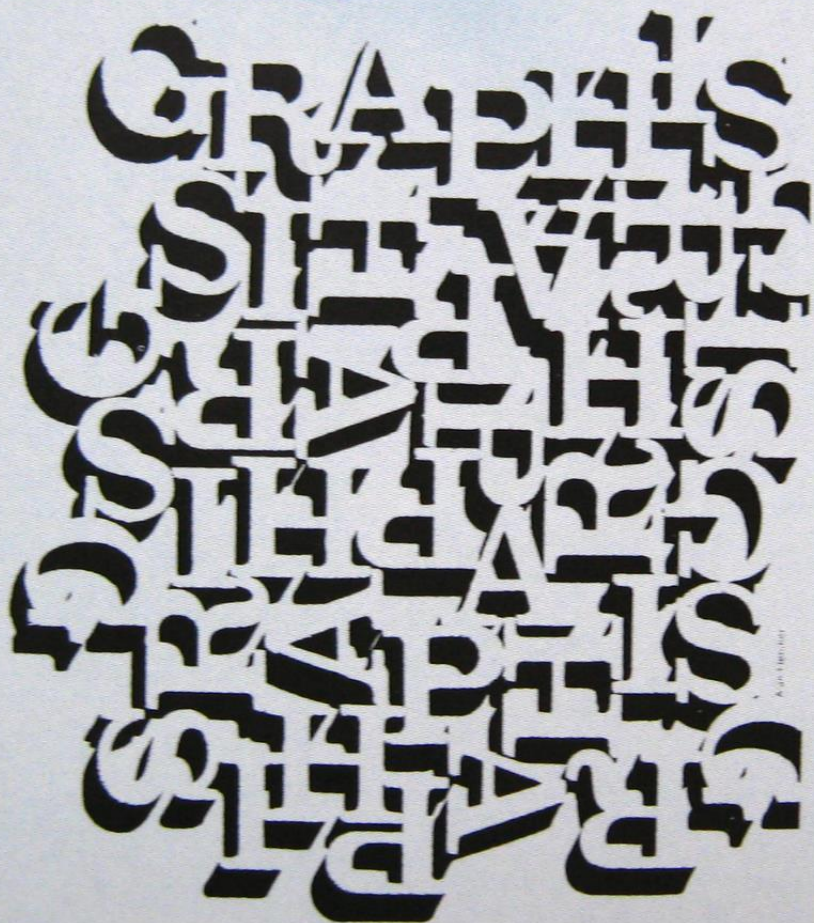 GRAPHIS
SIHPARG
GRAPHIS
SIHPARG
GRAPHIS
SIHPARG
Alan Fletcher